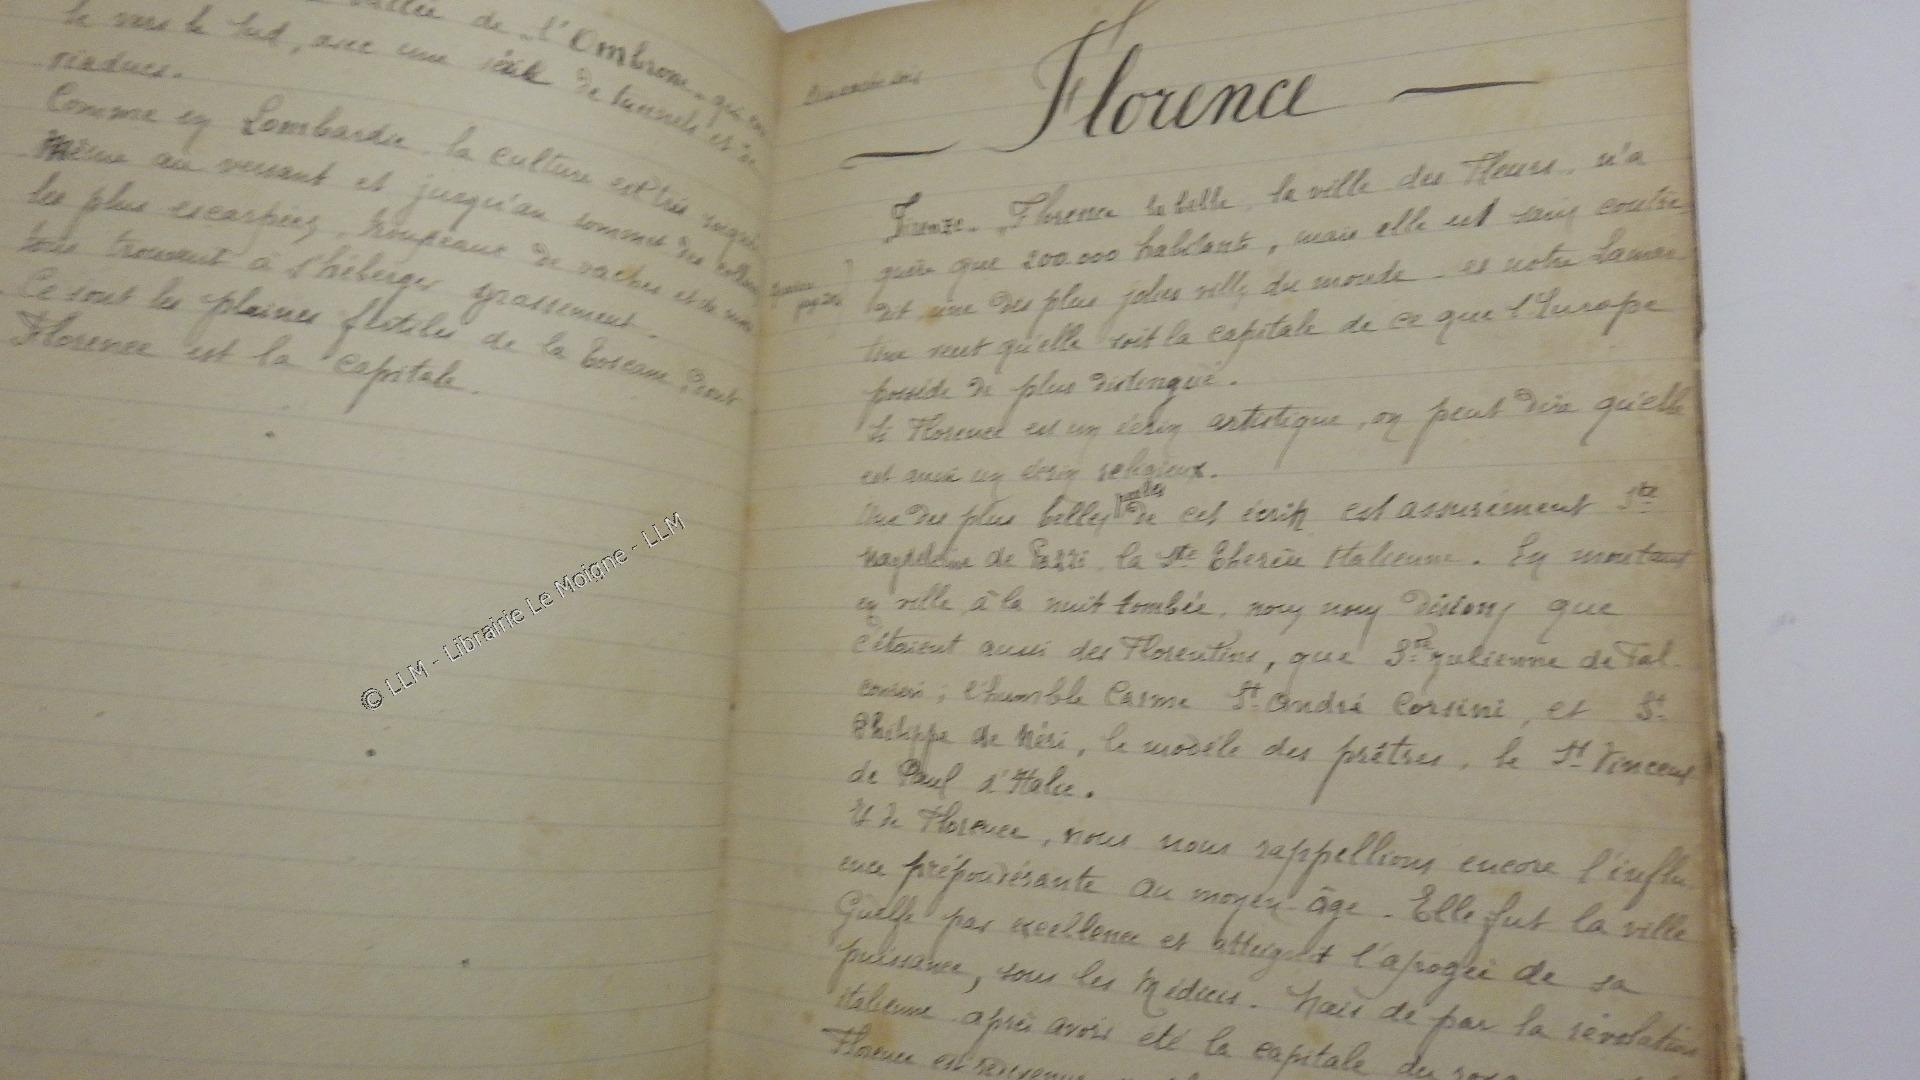 vallée de "l'Ombrone" qui
le vers le Sud, avec une série de tunnels et de
viaducs.
Comme en Lombardie la culture est très soignée
Même au versant et jusqu'au sommet des collines
les plus escarpées, troupeaux de vaches et de
tous trouvent à s'héberger grassement.
Ce sont les plaines fertiles de la Toscane dont
Florence est la capitale.
© LLM - Librairie Le Moigne - LLM
Dimanche soir
Florence
"Firenze" "Florence la belle, la ville des Fleurs, n'a
guère que 200.000 habitants, mais elle est sans contre-
dit une des plus jolies villes du monde et notre Lamar-
tine veut qu'elle soit la capitale de ce que l'Europe
possède de plus distingué.
Si Florence est un écrin artistique, on peut dire qu'elle
est aussi un écrin religieux.
Une des plus belles perles de cet écrin est assurément Ste
Magdeleine de Pazzi, la Ste Thérèse Italienne. En montant
en ville à la nuit tombée, nous nous disions que
c'étaient aussi des Florentins, que Ste Julienne de Fal-
conieri ; l'humble Carme St André Corsini, et St
Philippe de Néri, le modèle des prêtres, le St Vincent
de Paul d'Italie.
Et de Florence, nous nous rappellions encore l'influ-
ence prépondérante au moyen-âge. Elle fut la ville
Guelfe par excellence et atteignit l'apogée de sa
puissance, sous les Médicis. Mais de par la révolution
italienne après avoir été la capitale du
Florence est